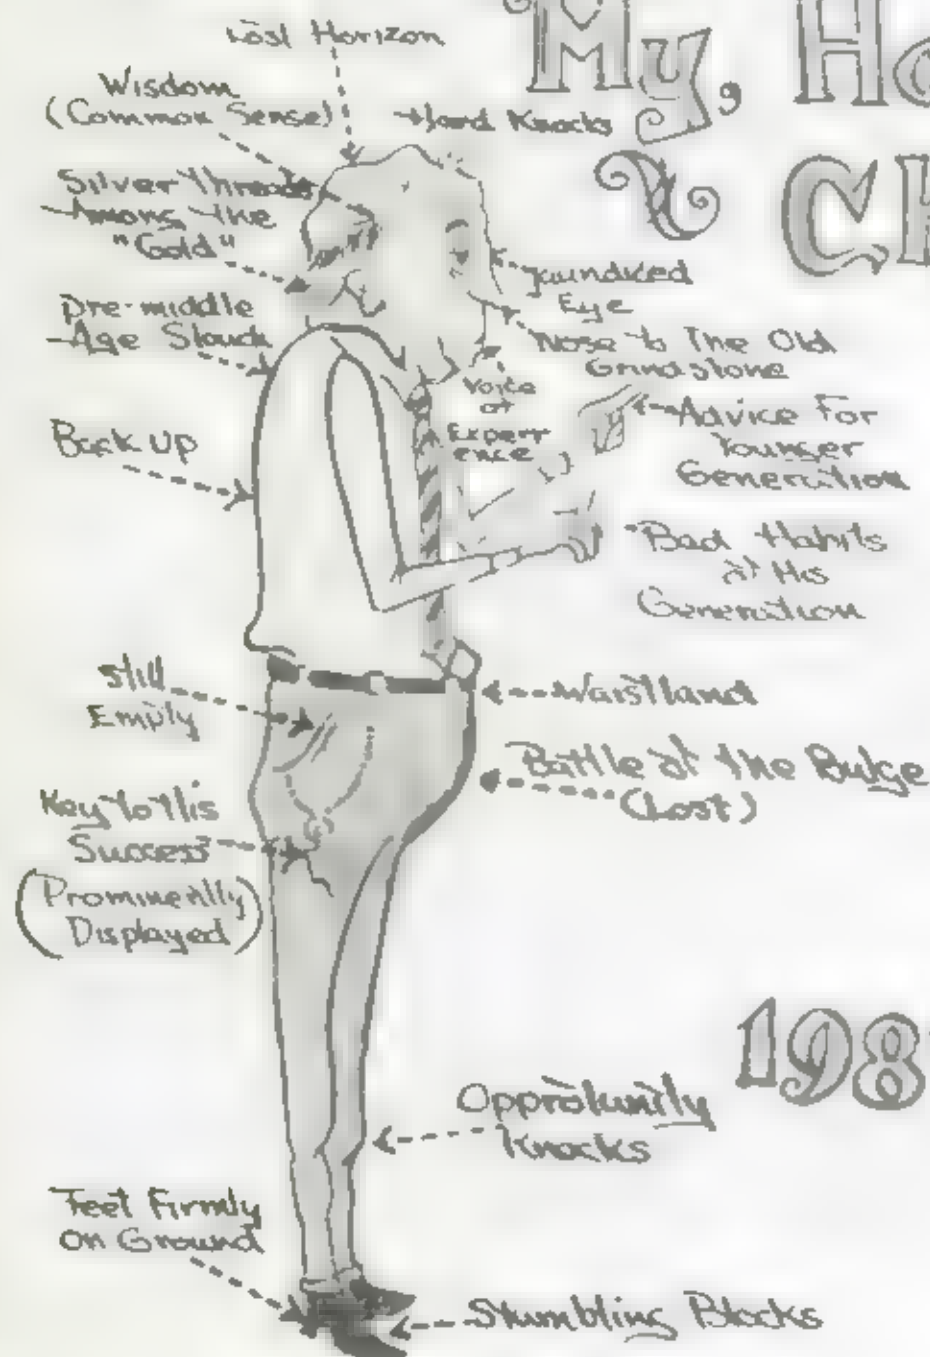 Lost Horizon
My, Ho
Wisdom
(Common Sense)
Hard Knocks
Silver Threads
Among The
"Gold"
Jaundiced
Eye
Pre-middle
Age Slouch
Nose to The Old
Grindstone
Voice
of
Experi
ence
Advice For
Younger
Generation
Back up
Bad Habits
of His
Generation
Still
Empty
Waistland
Battle of the Bulge
(Lost)
Key to His
Success
(Prominently
Displayed)
198
Opportunity
Knocks
Feet Firmly
on Ground
Stumbling Blocks